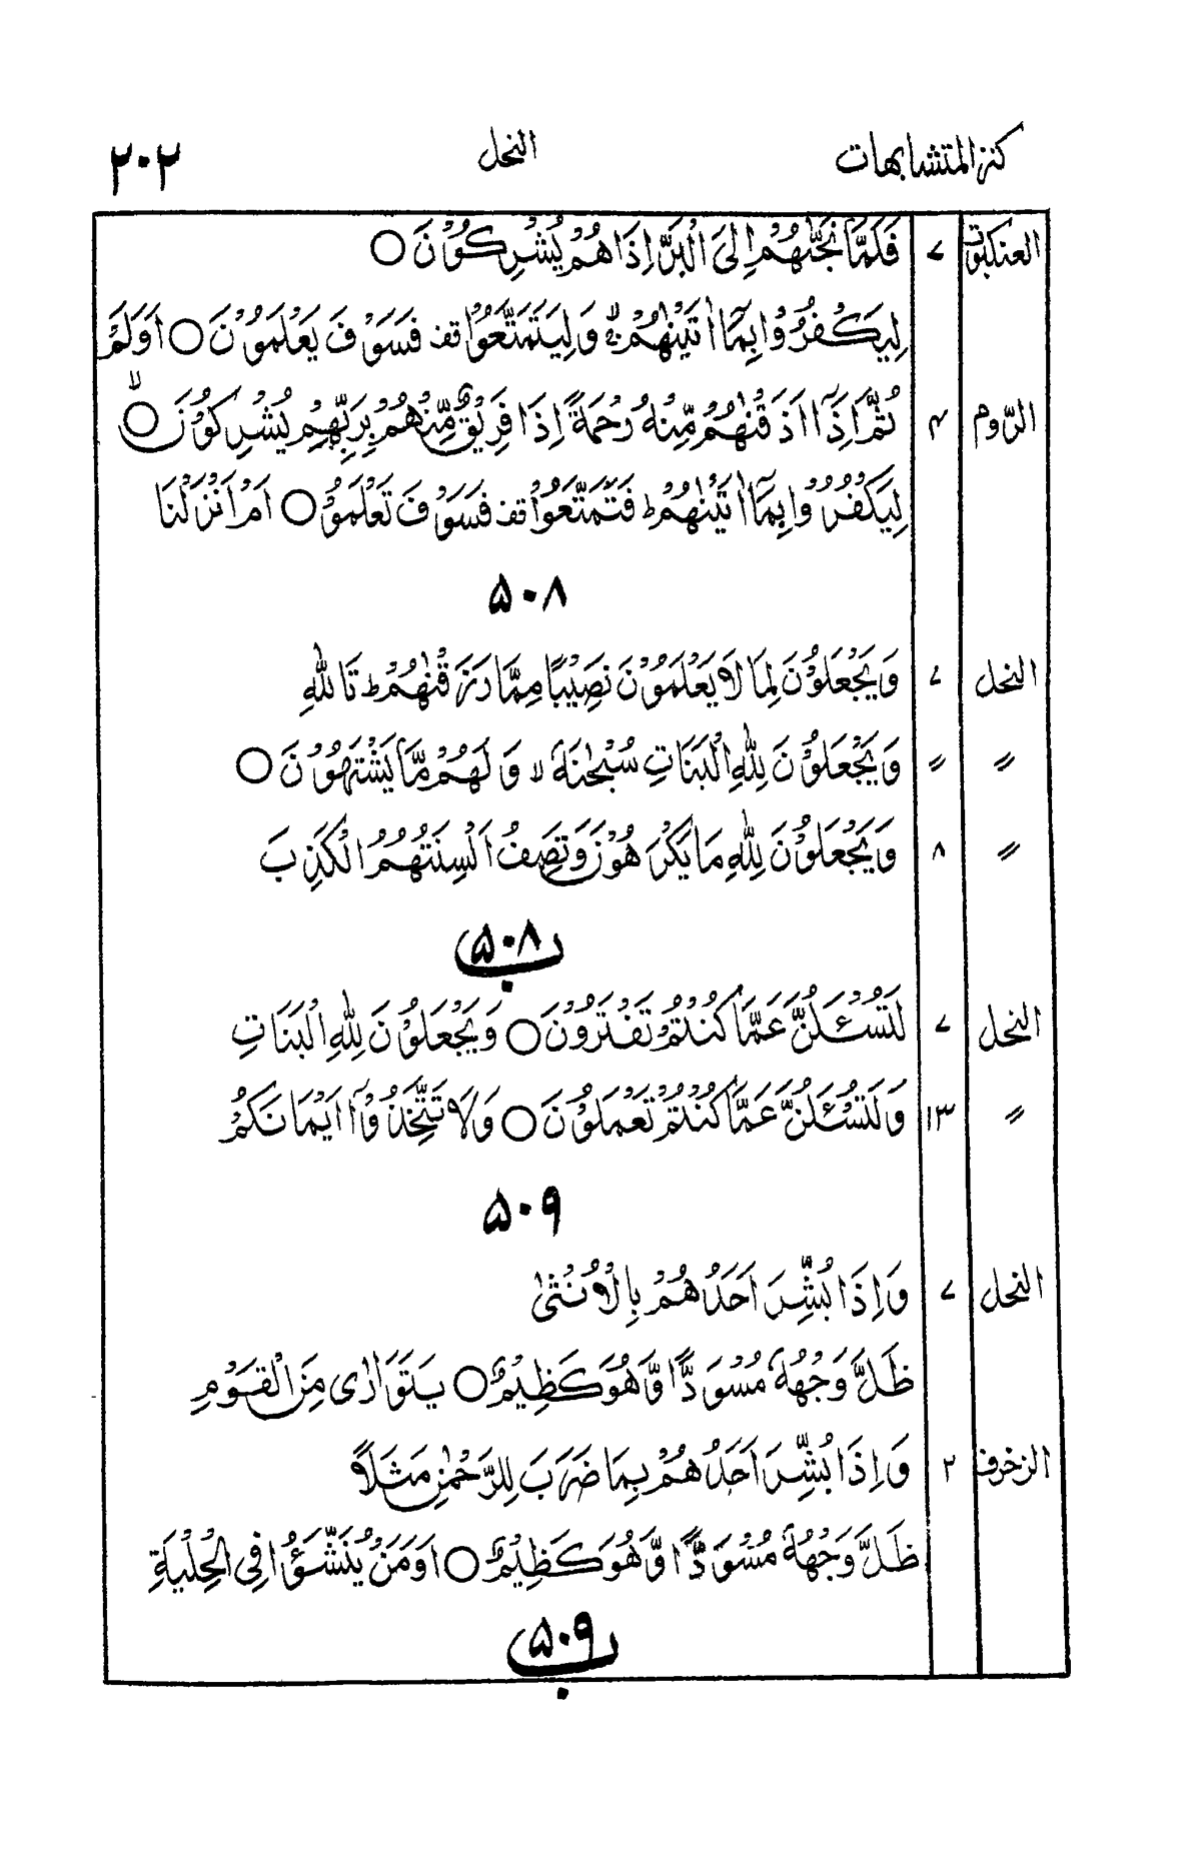 كنز المتشابهات النحل ٢٠٢
العنكبوت ٧ فَلَمَّا نَجّٰىهُمْ اِلَى الْبَرِّ اِذَا هُمْ يُشْرِكُوْنَ ○
لِيَكْفُرُوْا بِمَآ اٰتَيْنٰهُمْ ۙ وَلِيَتَمَتَّعُوْا قف فَسَوْفَ يَعْلَمُوْنَ ○ اَوَلَمْ
الرّوم ٤ ثُمَّ اِذَآ اَذَاقَهُمْ مِّنْهُ رَحْمَةً اِذَا فَرِيْقٌ مِّنْهُمْ بِرَبِّهِمْ يُشْرِكُوْنَ ○ لا
لِيَكْفُرُوْا بِمَآ اٰتَيْنٰهُمْ ط فَتَمَتَّعُوْا قف فَسَوْفَ تَعْلَمُوْ ○ اَمْ اَنْزَلْنَا
۵۰۸
النحل ٧ وَيَجْعَلُوْنَ لِمَا لَا يَعْلَمُوْنَ نَصِيْبًا مِمَّا رَزَقْنٰهُمْ ط تَاللّٰهِ
〃 〃 وَيَجْعَلُوْنَ لِلّٰهِ الْبَنَاتِ سُبْحٰنَهٗ لا وَلَهُمْ مَّا يَشْتَهُوْنَ ○
〃 ٨ وَيَجْعَلُوْنَ لِلّٰهِ مَا يَكْرَهُوْنَ وَتَصِفُ اَلْسِنَتُهُمُ الْكَذِبَ
۵۰۸ ب
النحل ٧ لَتُسْـَٔلُنَّ عَمَّا كُنْتُمْ تَفْتَرُوْنَ ○ وَيَجْعَلُوْنَ لِلّٰهِ الْبَنَاتِ
〃 ١٣ وَلَتُسْـَٔلُنَّ عَمَّا كُنْتُمْ تَعْمَلُوْنَ ○ وَلَا تَتَّخِذُوْٓا اَيْمَانَكُمْ
۵۰۹
النحل ٧ وَاِذَا بُشِّرَ اَحَدُهُمْ بِالْاُنْثٰى
ظَلَّ وَجْهُهٗ مُسْوَدًّا وَّهُوَ كَظِيْمٌ ○ يَتَوَارٰى مِنَ الْقَوْمِ
الزخرف ٢ وَاِذَا بُشِّرَ اَحَدُهُمْ بِمَا ضَرَبَ لِلرَّحْمٰنِ مَثَلًا
ظَلَّ وَجْهُهٗ مُسْوَدًّا وَّهُوَ كَظِيْمٌ ○ اَوَمَنْ يُّنَشَّؤُا فِى الْحِلْيَةِ
۵۰۹ ب